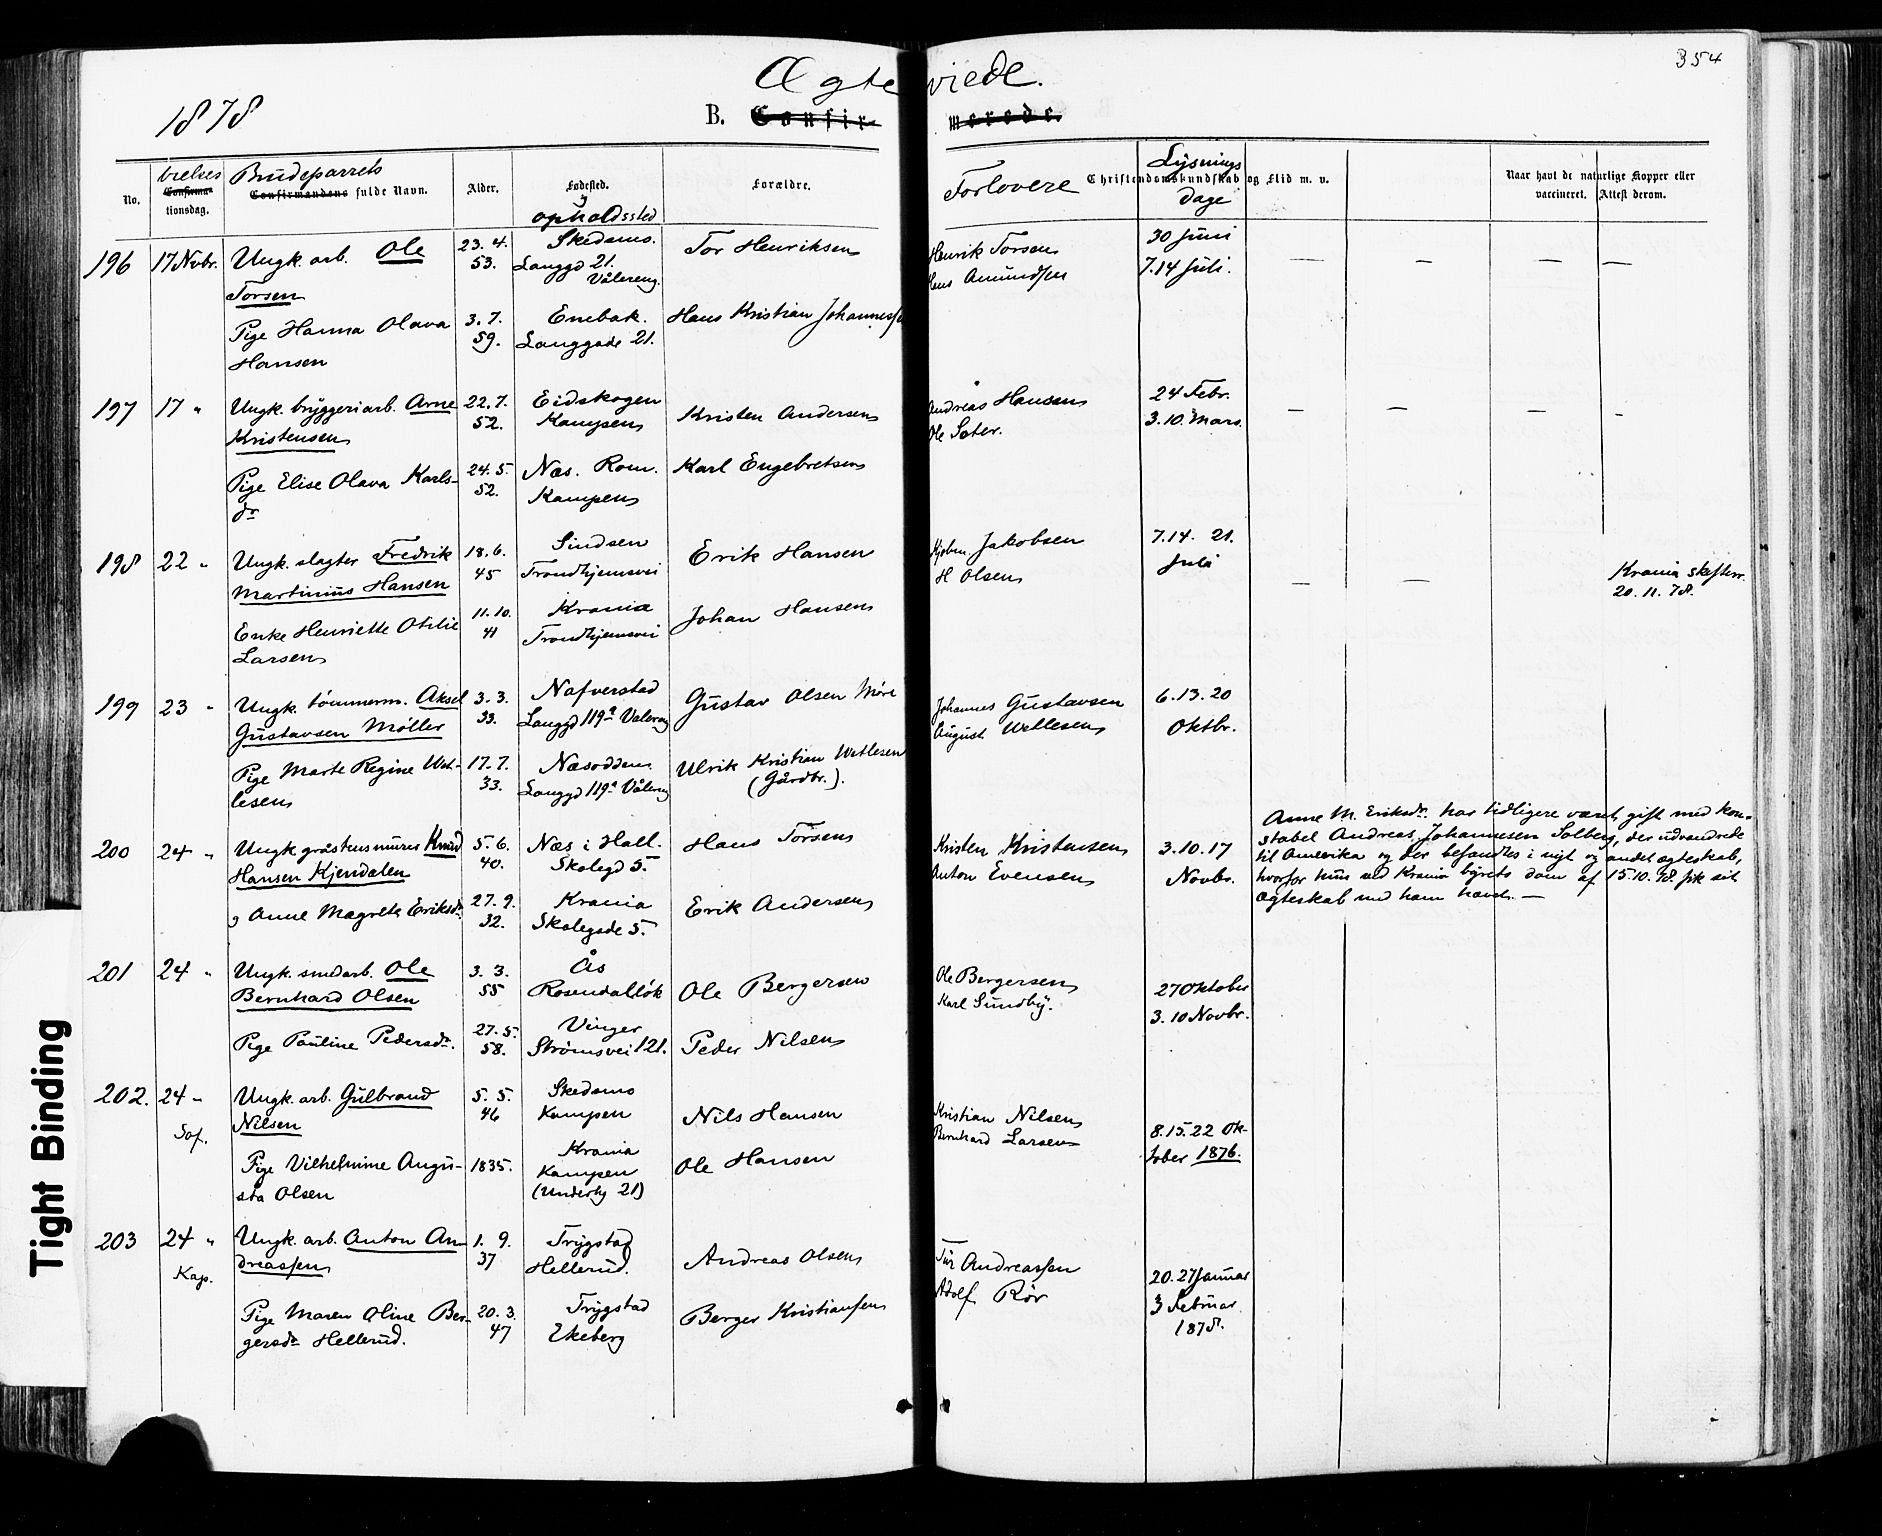 354
Ægteviede.
1878
B. Confirmerede.
No.
Vielses
Confirmationsdag.
Brudeparrets
Confirmandens fulde Navn.
Alder.
Fødested.
og
opholdssted
Forældre.
Forlovere
Christendomskundskab og Flid m. v.
Lysnings
dage
Naar havt de naturlige Kopper eller
vaccineret. Attest derom.
196 17 Novbr. Ungk. arb. Ole 23. 4. Skedsmo. Tor Henriksen Henrik Torsen 30 Juni — — — —
Torsen 53. Langgd 21. Hans Amundsen 7.14 Juli.
Vålereng.
Pige Hanna Olava 3. 7. Enebak. Hans Kristian Johannessen
Hansen 59. Langgade 21.
197 17 " Ungk. bryggeriarb. Arne 22. 7. Eidskogen Kristen Andersen Andreas Hansen 24 Febr. — — — -
Kristensen 52. Kampen Ole Sater. 3.10. Mars.
Pige Elise Olava Karls- 24. 5. Næs. Rom. Karl Engebretsen
dr 52. Kampen
198 22 " Ungk. slagter Fredrik 18. 6. Sindsen Erik Hansen Jakobsen 7.14. 21.
Martinius Hansen 45 Trondhjemsvei H Olsen Juli — — Krania skifterr.
20. 11. 78.
Enke Henriette Otilie 11. 10. Krania Johan Hansen
Larsen 41 Trondhjemsvei
199 23 " Ungk. tømmerm. Aksel 3. 3. Nafverstad Gustav Olsen Møre Johannes Gustavsen 6.13.20
Gustavsen Møller 33. Langgd 119a Valereng August Wetlesen Oktbr.
Pige Marte Regine Wet- 17. 7. Næsodden Ulrik Kristian Wetlesen
lesen 33. Langgd 119a Vålereng (Gårdbr.).
200 24 " Ungk. gråstensmurer Knud 5. 6. Næs i Hall. Hans Torsen Kristen Kristensen 3.10.17
Hansen Kjendalen 40. Skolegd 5. Anton Evensen Novbr.
Anne M. Eriksdr. har tidligere været gift med kon-
stabel Andreas Johannesen Solberg, der udvandrede
til Amerika og der befandtes i nyt og andet ægteskab,
hvorfor hun ved Krania byrets dom af 15.10.78 fik sit
ægteskab med ham hævet. —
og Anne Magrete Eriksdr. 27. 9. Krania Erik Andersen
32. Skolegade 5.
201 24 " Ungk. smedarb. Ole 3. 3. Ås Ole Bergersen Ole Bergersen 27 Oktober
Bernhard Olsen 55 Rosendalløk Karl Sundby. 3. 10 Novbr.
Pige Pauline Pedersdr. 27. 5. Vinger Peder Nilsen
58. Strømsvei 121.
202. 24 " Ungk. arb. Gulbrand 5. 5. Skedsmo Nils Hansen Kristian Nilsen 8.15.22 Ok-
Sof. Nilsen 46 Kampen Bernhard Larsen tober 1876.
Pige Vilhelmine Augu- 1835. Krania Ole Hansen
sta Olsen Kampen
(Underhg 21)
203 24 " Ungk. arb. Anton An- 1. 9. Trygstad Andreas Olsen Tur Andreassen 20. 27 Januar
Kap. dreassen 37 Hellerud. Adolf Rör 3 Februar
1878.
Pige Maren Oline Ber- 20. 3. Trygstad Berger Kristiansen
gersdr Hellerud. 47 Ekeberg
Tight Binding